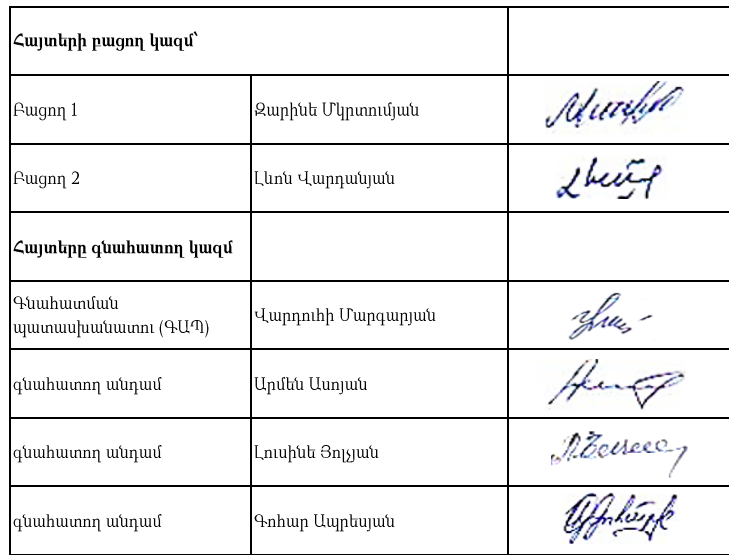 Հայտերի բացող կազմ՝
Բացող 1 Զարինե Մկրտումյան
Բացող 2 Լևոն Վարդանյան
Հայտերը գնահատող կազմ
Գնահատման
պատասխանատու (ԳԱՊ) Վարդուհի Մարգարյան
գնահատող անդամ Արմեն Ասոյան
գնահատող անդամ Լուսինե Յոլչյան
գնահատող անդամ Գոհար Ապրեսյան